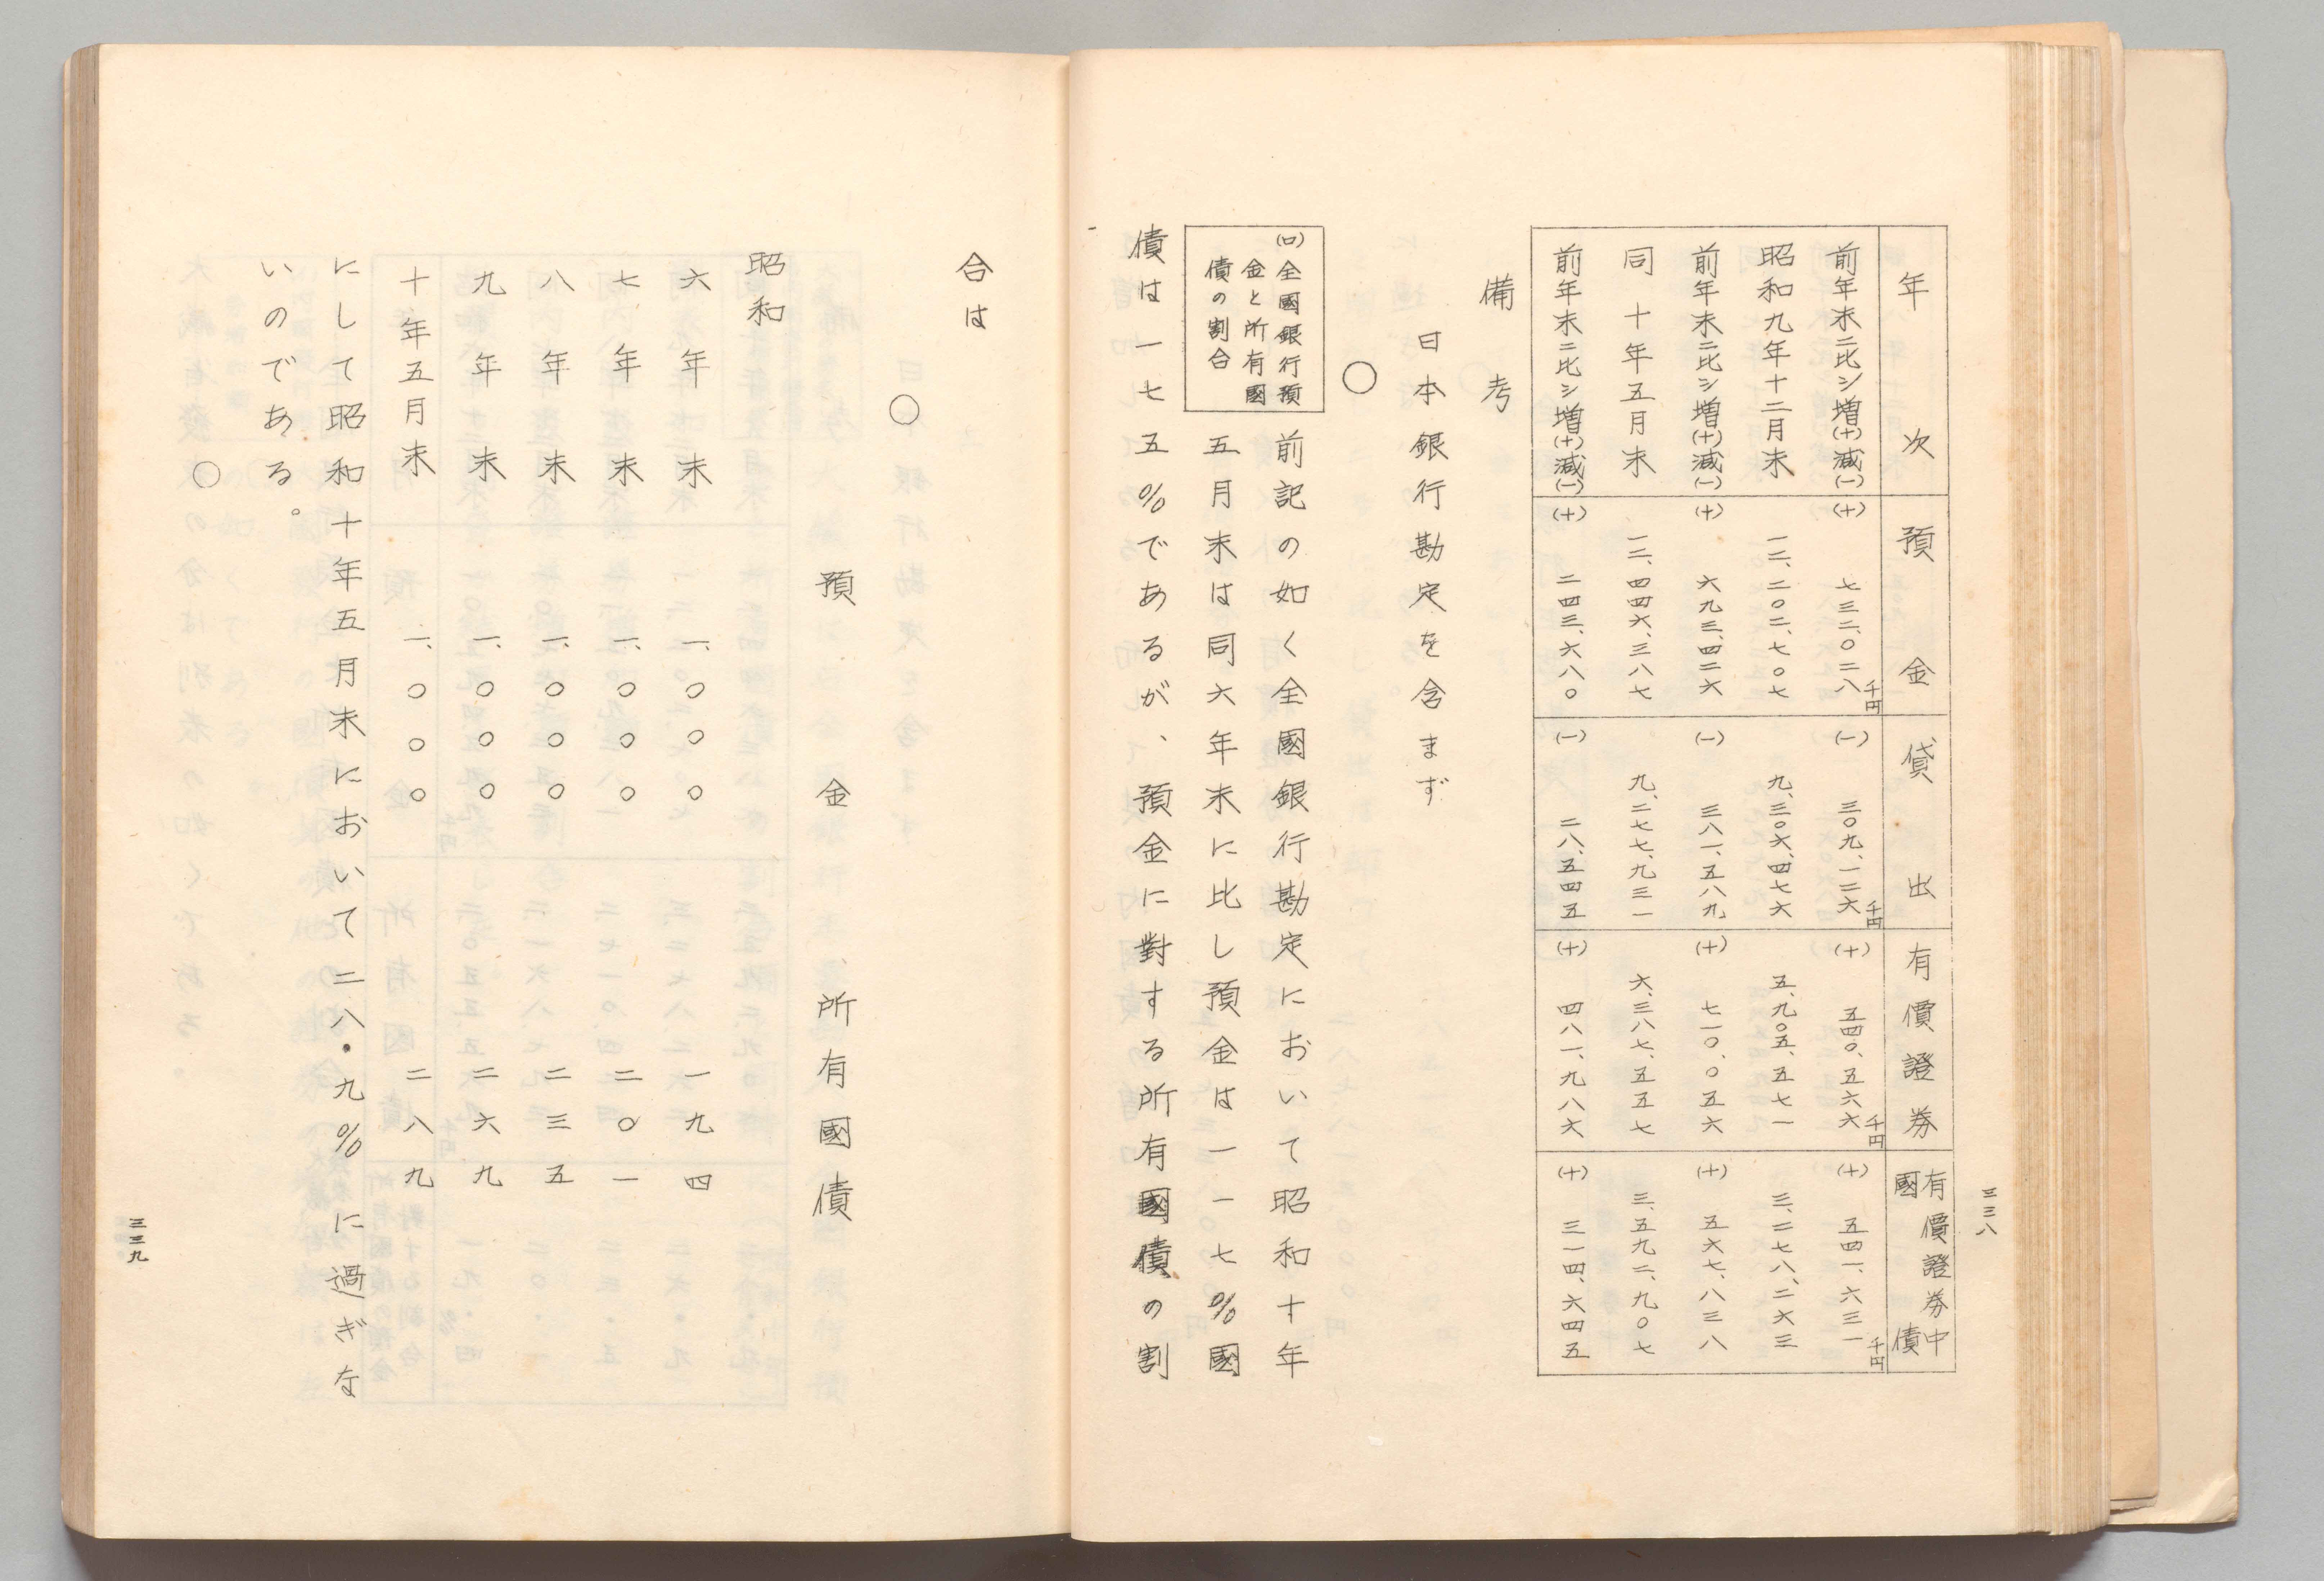 三三八
年次 預金 貸出 有價證券 有價證券中國債
前年末ニ比シ増(+)減(-) (+) 七三二、〇二八千円 (-) 三〇九、一二六千円 (+) 五四〇、五六六千円 (+) 五四一、六三一千円
昭和九年十二月末 一二、二〇二、七〇七 九、三〇六、四七六 五、九〇五、五七一 三、二七八、二六三
前年末ニ比シ増(+)減(-) (+) 六九三、四二六 (-) 三八一、五八九 (+) 七一〇、〇五六 (+) 五六七、八三八
同 十年五月末 一二、四四六、三八七 九、二七七、九三一 六、三八七、五五七 三、五九二、九〇七
前年末ニ比シ増(+)減(-) (+) 二四三、六八〇 (-) 二八、五四五 (+) 四八一、九八六 (+) 三一四、六四五
備考
日本銀行勘定を含まず
○
(ロ)全國銀行預
金と所有國
債の割合
前記の如く全國銀行勘定において昭和十年
五月末は同六年末に比し預金は一一七%國
債は一七五%であるが、預金に對する所有國債の割
合は
○
預金 所有國債
昭和
六年末 一、〇〇〇 一九四
七年末 一、〇〇〇 二〇一
八年末 一、〇〇〇 二三五
九年末 一、〇〇〇 二六九
十年五月末 一、〇〇〇 二八九
にして昭和十年五月末において二八・九%に過ぎな
いのである。
○
三三九